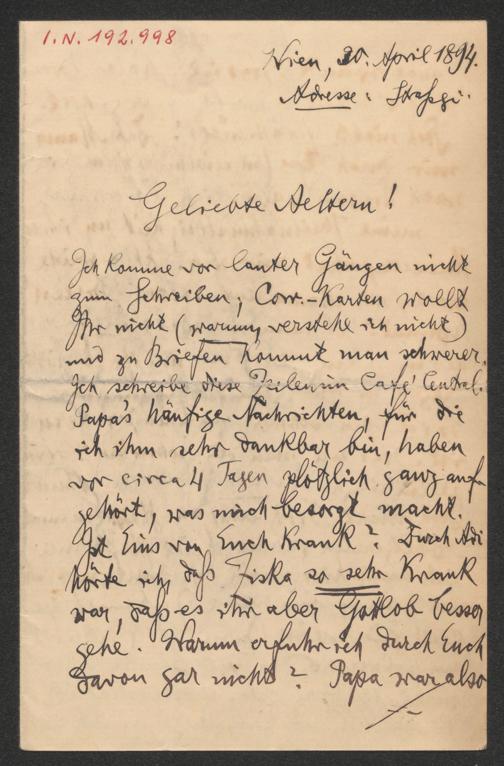 I.N. 192.998
Wien, 20. April 1894.
Adresse: Strassgi.
Geliebte Aeltern!
Ich komme vor lauter Gängen nicht
zum Schreiben; Corr.-Karten wollt
Ihr nicht (warum, verstehe ich nicht)
und zu Briefen kommt man schwerer.
Ich schreibe diese Zeilen im Café Central.
Papa's häufige Nachrichten, für die
ich ihm sehr dankbar bin, haben
vor circa 4 Tagen plötzlich ganz auf-
gehört, was mich besorgt macht.
Ist Eins von Euch krank? Durch Adi
hörte ich, daß Ziska so sehr krank
war, daß es ihr aber Gottlob besser
gehe. Warum erfuhr ich durch Euch
davon gar nichts? Papa war also